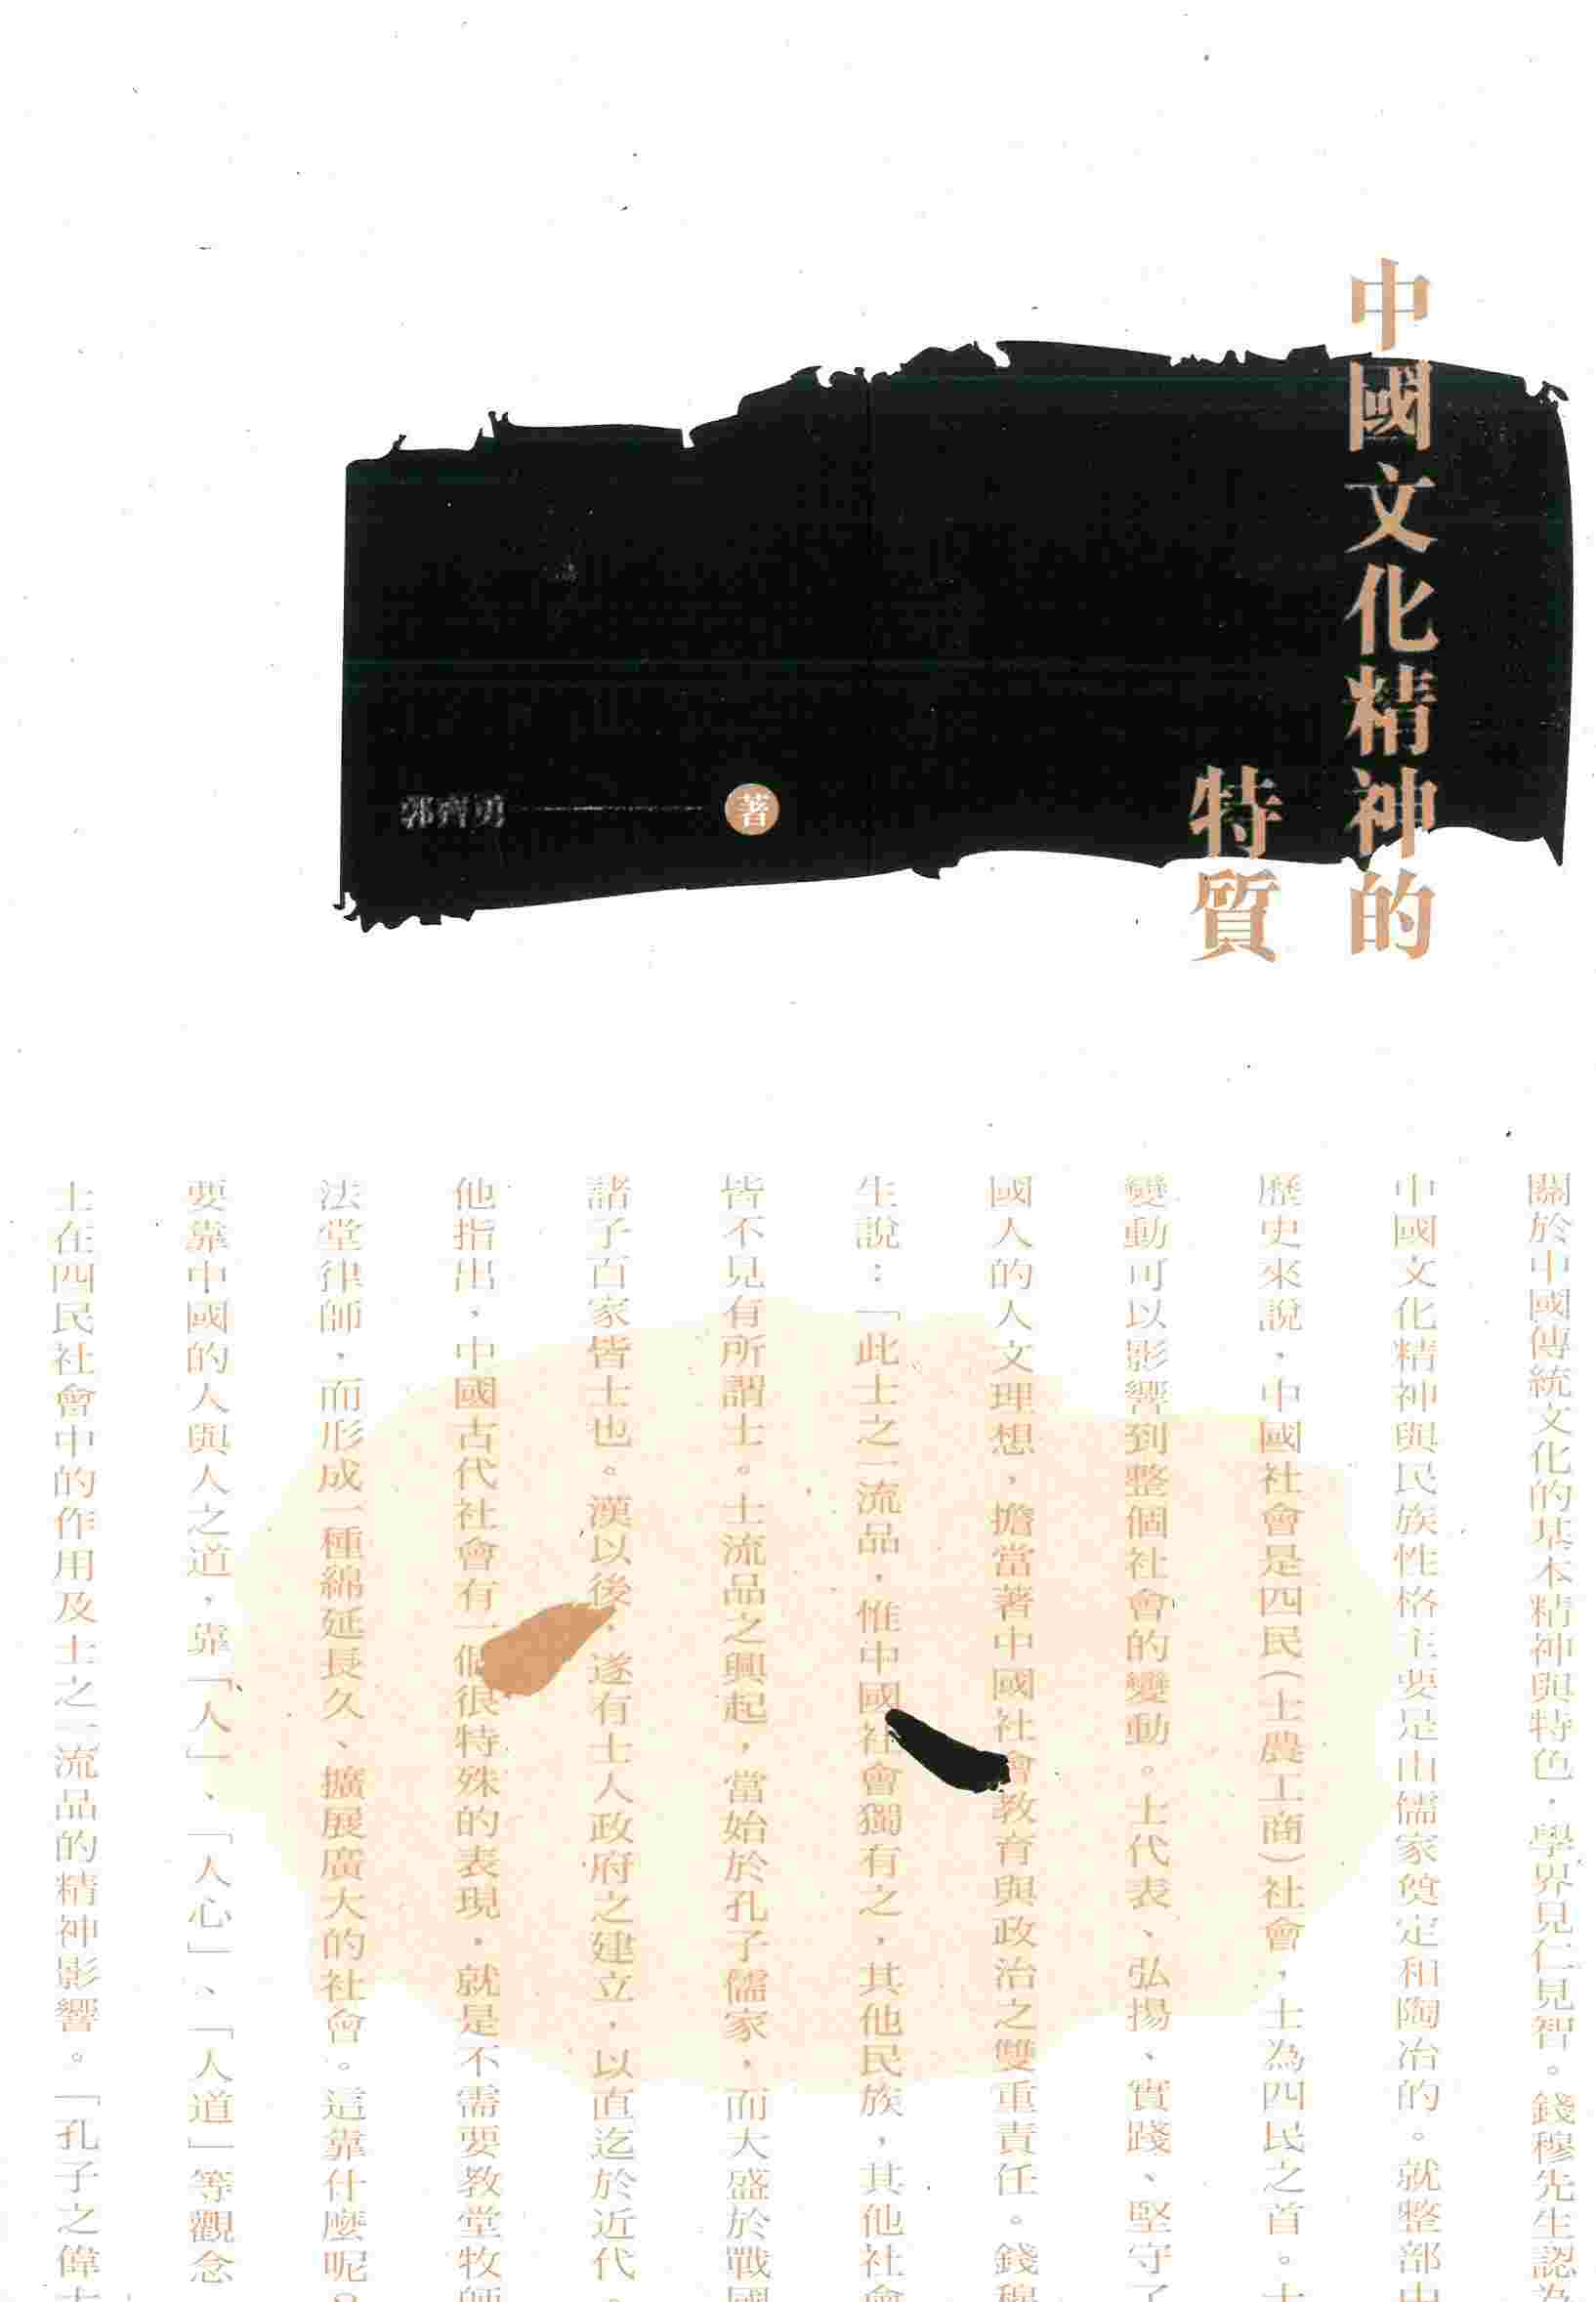 中國文化精神的
特質
郭齊勇 著
關於中國傳統文化的基本精神與特色，學界見仁見智。錢穆先生認為
中國文化精神與民族性格主要是由儒家奠定和陶冶的。就整部中
歷史來說，中國社會是四民（士農工商）社會，士為四民之首。士
變動可以影響到整個社會的變動。士代表、弘揚、實踐、堅守了
國人的人文理想，擔當著中國社會教育與政治之雙重責任。錢穆
生說：「此士之一流品，惟中國社會獨有之，其他民族，其他社會
皆不見有所謂士。士流品之興起，當始於孔子儒家，而大盛於戰國
諸子百家皆士也。漢以後，遂有士人政府之建立，以直迄於近代。
他指出，中國古代社會有一個很特殊的表現，就是不需要教堂牧師
法堂律師，而形成一種綿延長久、擴展廣大的社會。這靠什麼呢？
要靠中國的人與人之道，靠「人」、「人心」、「人道」等觀念
士在四民社會中的作用及士之一流品的精神影響。「孔子之偉大